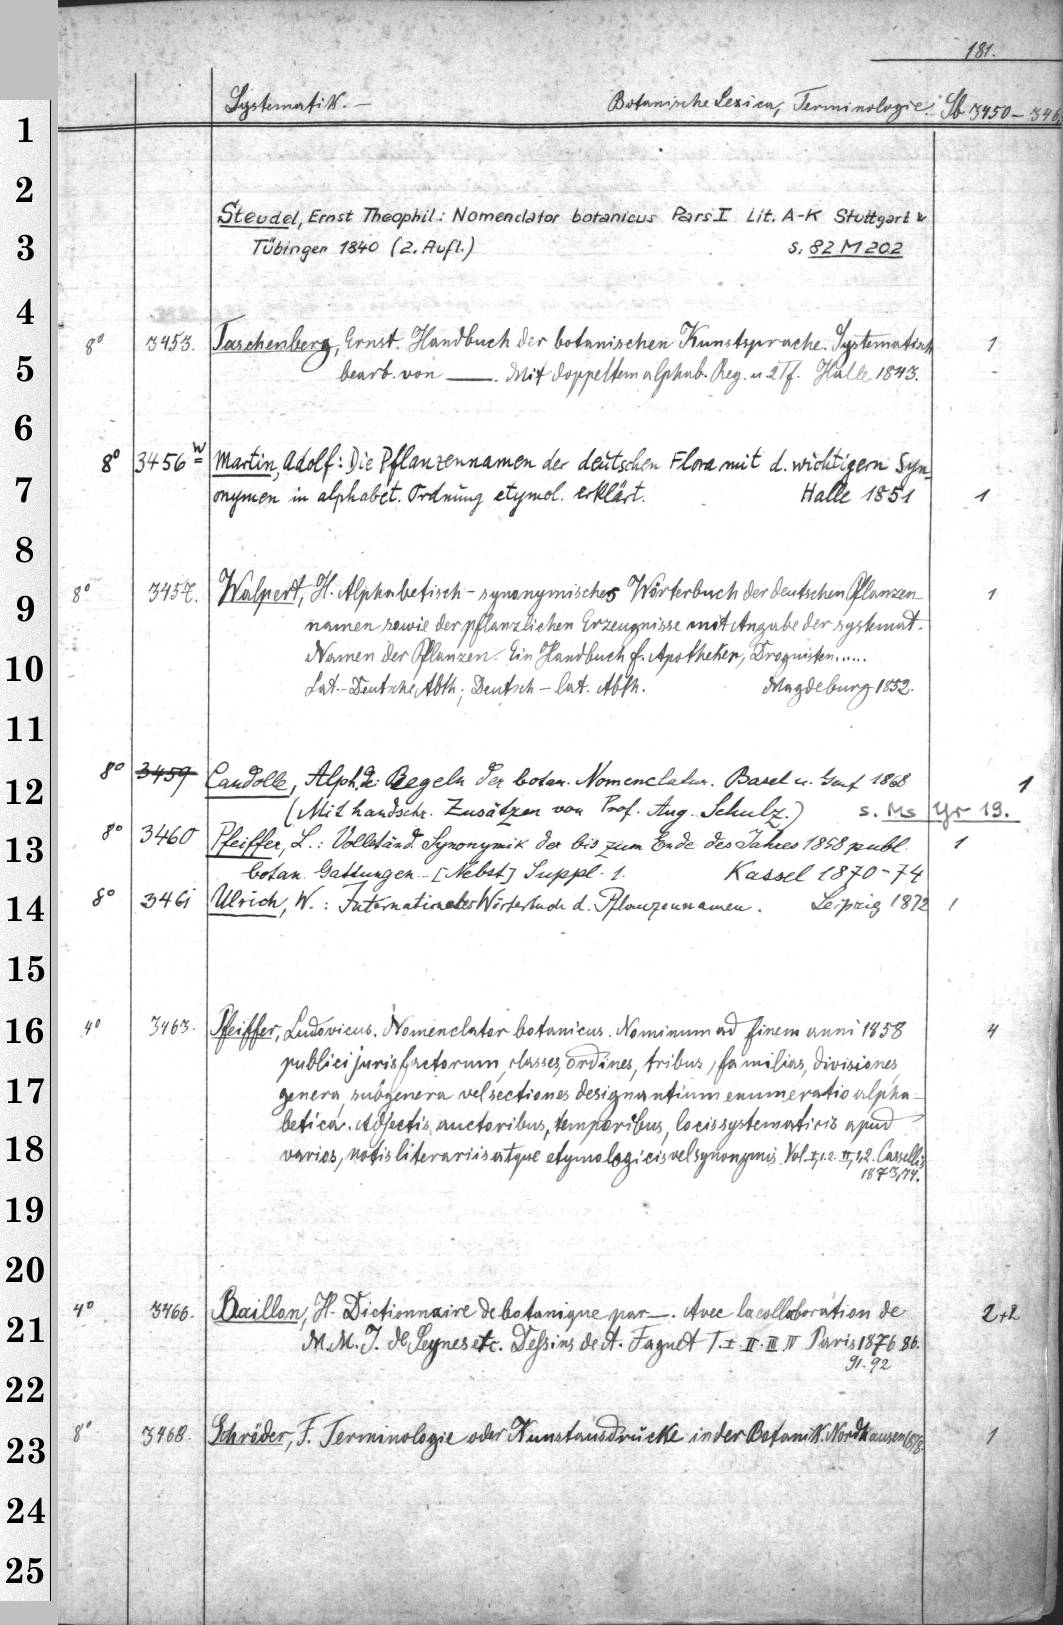 181.
Systematik. — Botanische Lexica, Terminologie. Sb 3450 – 346
Steudel, Ernst Theophil: Nomenclator botanicus Pars I Lit. A-K Stuttgart u
Tübingen 1840 (2. Aufl.) s. 82 M 202
8° 3453. Taschenberg, Ernst. Handbuch der botanischen Kunstsprache. Systematisch 1
bearb. von —. Mit doppeltem alphab. Reg. u. 2 Tf. Halle 1843.
8° 3456 w Martin, Adolf: Die Pflanzennamen der deutschen Flora mit d. wichtigern Syn-
onymen in alphabet. Ordnung etymol. erklärt. Halle 1851 1
8° 3457. Walpert, H. Alphabetisch – synonymisches Wörterbuch der deutschen Pflanzen 1
namen sowie der pflanzlichen Erzeugnisse mit Angabe der systemat.
Namen der Pflanzen. Ein Handbuch f. Apotheker, Droguisten.....
Lat.-Deutsche Abth., Deutsch – lat. Abth. Magdeburg 1852.
8° 3459 Candolle, Alph. de: Regeln der botan. Nomenclatur. Basel u. Genf 1868 1
(Mit handschr. Zusätzen von Prof. Aug. Schulz.) s. Ms Yr 19.
8° 3460 Pfeiffer, L.: Vollständ. Synonymik der bis zum Ende des Jahres 1858 publ. 1
botan. Gattungen. – [Nebst] Suppl. 1. Kassel 1870-74
8° 3461 Ulrich, W.: Internationales Wörterbuch d. Pflanzennamen. Leipzig 1872 1
4° 3463. Pfeiffer, Ludovicus. Nomenclator botanicus. Nominum ad finem anni 1858 4
publici juris factorum, classes, ordines, tribus, familias, divisiones,
genera, subgenera vel sectiones designantium enumeratio alpha-
betica. Adjectis auctoribus, temporibus, locis systematicis apud
varios, notis literariis atque etymologicis vel synonymis. Vol. I,1.2. II,1,2. Cassellis
1873,74.
4° 3466. Baillon, H. Dictionnaire de botanique par —. Avec la collaboration de 2+2
M. M. J. de Seynes etc. Dessins de A. Faguet T. I. II. III. IV Paris 1876 86.
91. 92
8° 3468. Schröder, F. Terminologie oder Kunstausdrücke in der Botanik. Nordhausen 1878. 1
1
2
3
4
5
6
7
8
9
10
11
12
13
14
15
16
17
18
19
20
21
22
23
24
25